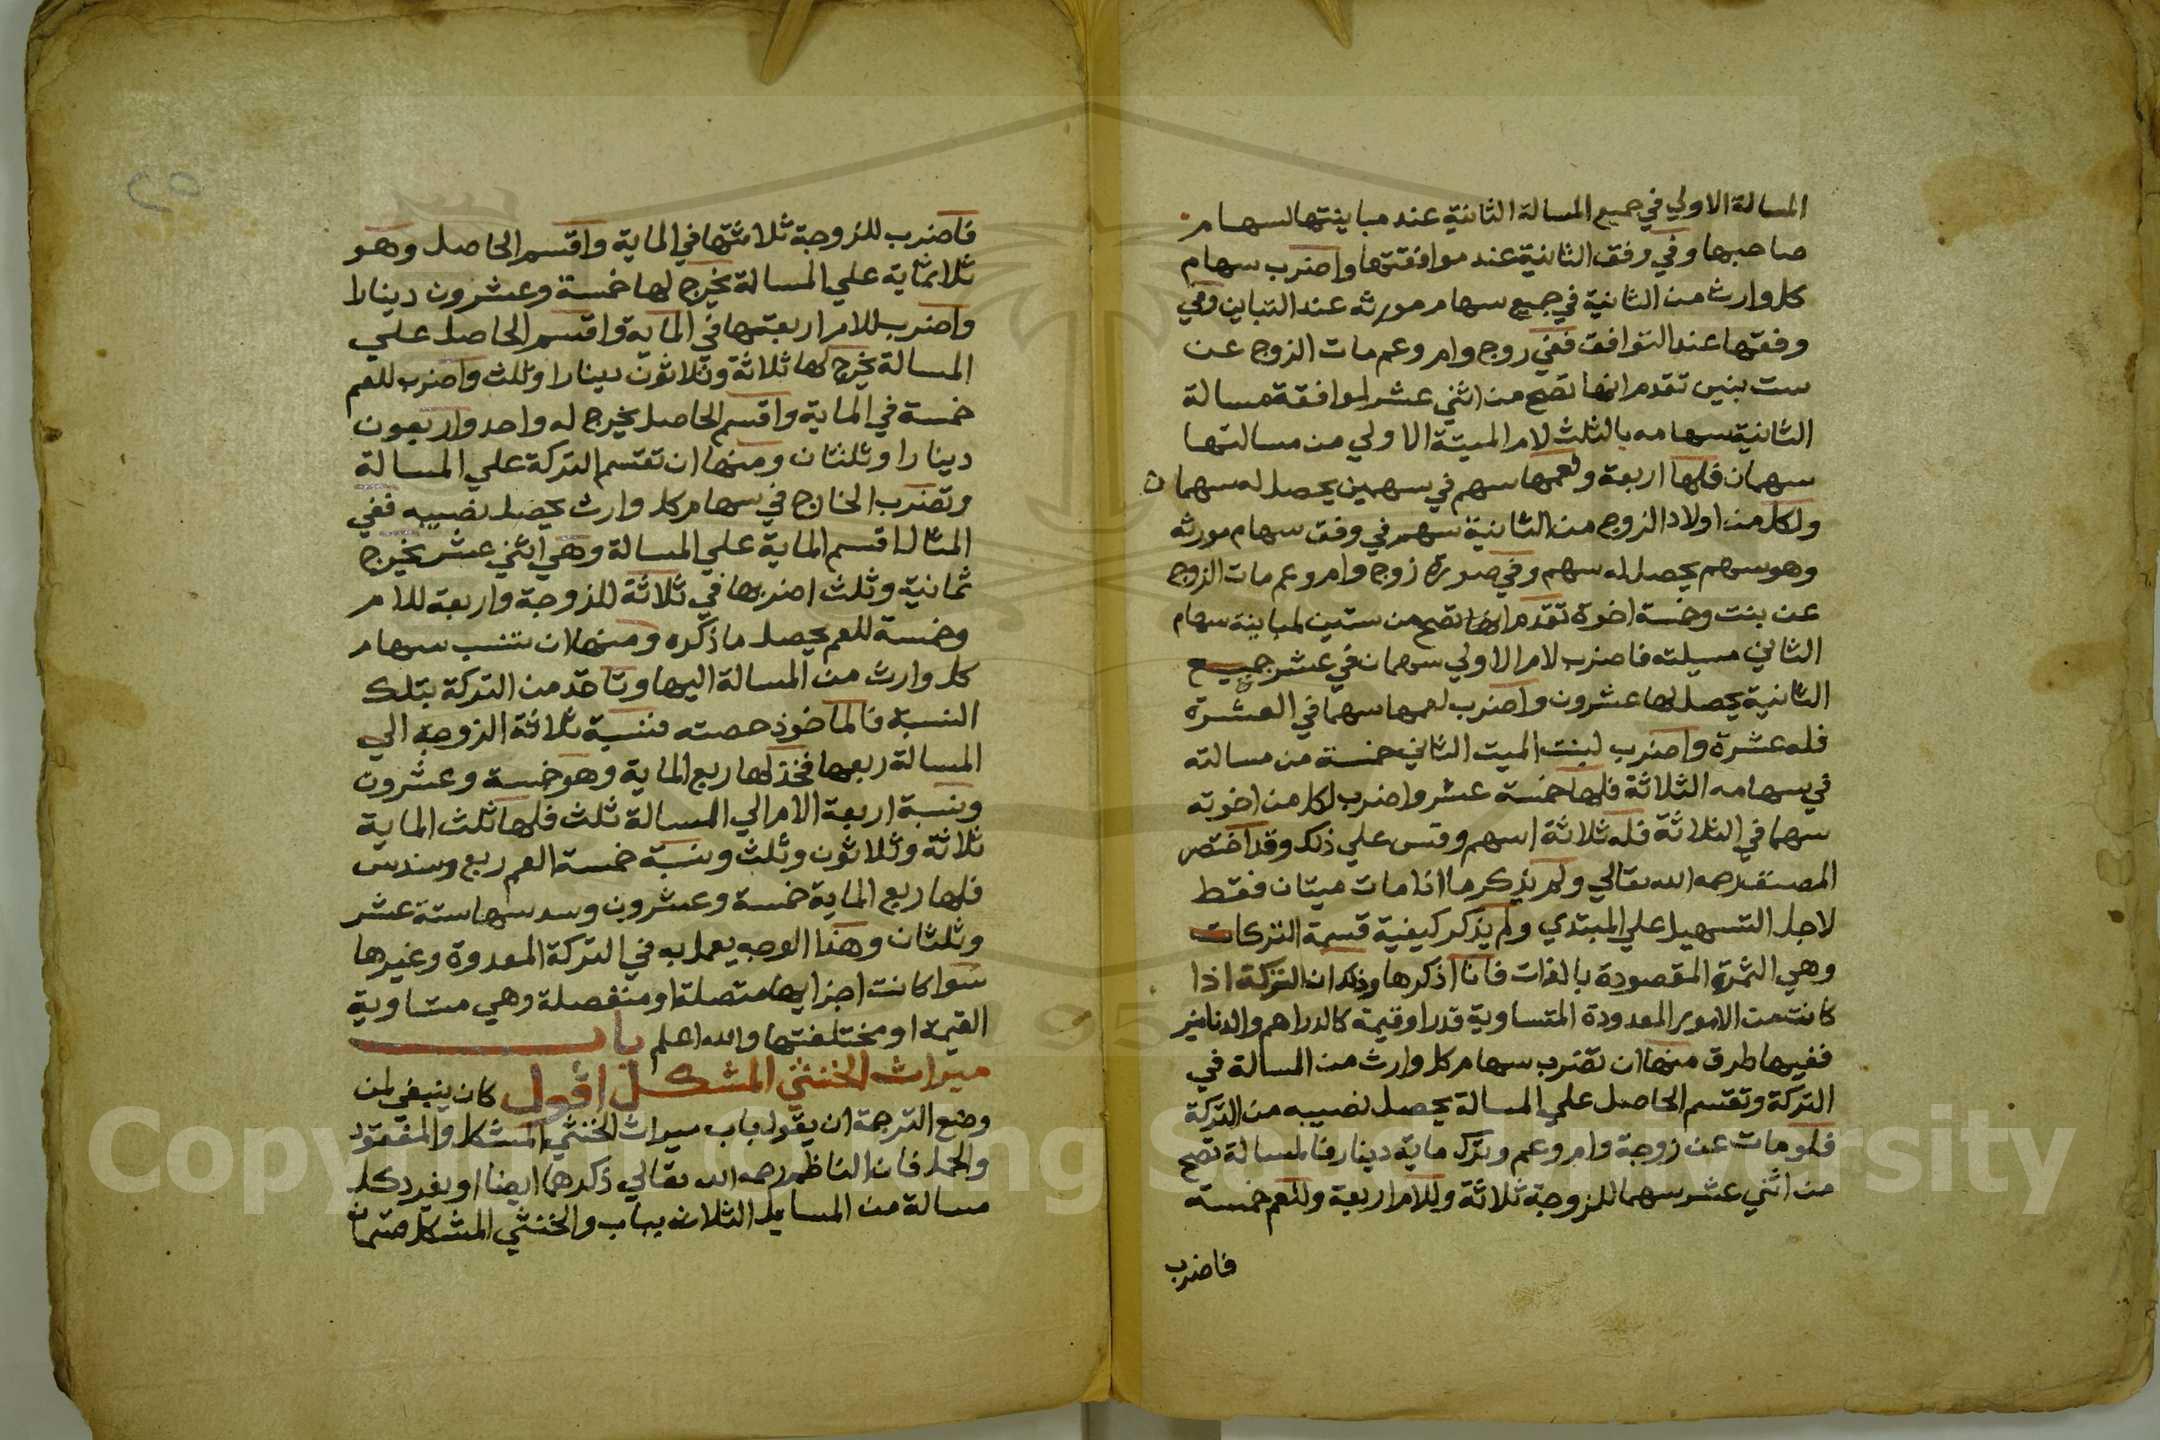 المسالة الاولي في جميع المسالة الثانية عند مباينتها لسهام
صاحبها وفي وفق الثانية عند موافقتها واضرب سهام
كل وارث من الثانية في جميع سهام مورثه عند التباين وفي
وفقها عند التوافق ففي زوج وام وعم مات الزوج عن
ست بنين تقدم انها تصح من اثني عشر لموافقة مسالة
الثانية سهامه بالثلث لام الميتة الاولي من مسالتها
سهمان فلها اربعة ولعمها سهم في سهمين يحصل له سهمان
ولكل من اولاد الزوج من الثانية سهم في وفق سهام مورثه
وهو سهم يحصل له سهم وفي صورة زوج وام وعم مات الزوج
عن بنت وخمسة اخوة تقدم انها تصح من ستين لمباينة سهام
الثاني مسيلته فاضرب لام الاولي سهمان في عشر جميع
الثانية يحصل لها عشرون واضرب لعمها سهما في العشرة
فله عشرة واضرب لبنت الميت الثاني خمسة من مسالته
في سهامه الثلاثة فلها خمسة عشر واضرب لكل من اخوته
سهما في الثلاثة فله ثلاثة اسهم وقس علي ذلك وقد اختصر
المصنف رحمه الله تعالي ولم يذكر ما اذا مات ميتان فقط
لاجل التسهيل علي المبتدي ولم يذكر كيفية قسمة التركات
وهي الثمرة المقصودة بالذات فانا اذكرها وذلك ان التركة اذا
كانت من الامور المعدودة المتساوية قدرا وقيمة كالدراهم والدنانير
ففيها طرق منها ان تضرب سهام كل وارث من المسالة في
التركة وتقسم الحاصل علي المسالة يحصل نصيبه من التركة
فلو مات عن زوجة وام وعم وترك ماية دينار فالمسالة تصح
من اثني عشر سهما للزوجة ثلاثة وللام اربعة وللعم خمسة
فاضرب
فاضرب للزوجة ثلاثتها في الماية واقسم الحاصل وهو
ثلاثماية علي المسالة يخرج لها خمسة وعشرون دينارا
واضرب للام اربعتها في الماية واقسم الحاصل علي
المسالة يخرج لها ثلاثة وثلاثون دينارا وثلث واضرب للعم
خمسة في الماية واقسم الحاصل يخرج له واحد واربعون
دينارا وثلثان ومنها ان تقسم التركة علي المسالة
وتضرب الخارج في سهام كل وارث يحصل نصيبه ففي
المثال اقسم الماية علي المسالة وهي اثني عشر يخرج
ثمانية وثلث اضربها في ثلاثة للزوجة واربعة للام
وخمسة للعم يحصل ما ذكره ومنها ان تنسب سهام
كل وارث من المسالة اليها وتاخذ من التركة بتلك
النسبة فالماخوذ حصته فنسبة ثلاثة الزوجة الي
المسالة ربعها فخذ لها ربع الماية وهو خمسة وعشرون
ونسبة اربعة الام الي المسالة ثلث فلها ثلث الماية
ثلاثة وثلاثون وثلث ونسبة خمسة العم ربع وسدس
فلها ربع الماية خمسة وعشرون وسدسها ستة عشر
وثلثان وهذا الوجه يعمل به في التركة المعدودة وغيرها
سوا كانت اجزايها متصلة او منفصلة وهي متساوية
القيمة او مختلفتها والله اعلم باب
ميراث الخنثي المشكل اقول كان ينبغي لمن
وضع الترجمة ان يقول باب ميراث الخنثي المشكل والمفقود
والحمل فان الناظم رحمه الله تعالي ذكرهما ايضا او يفرد كل
مسالة من المسايل الثلاث بباب والخنثي المشكل قسمان
Copyright © King Saud University
1957